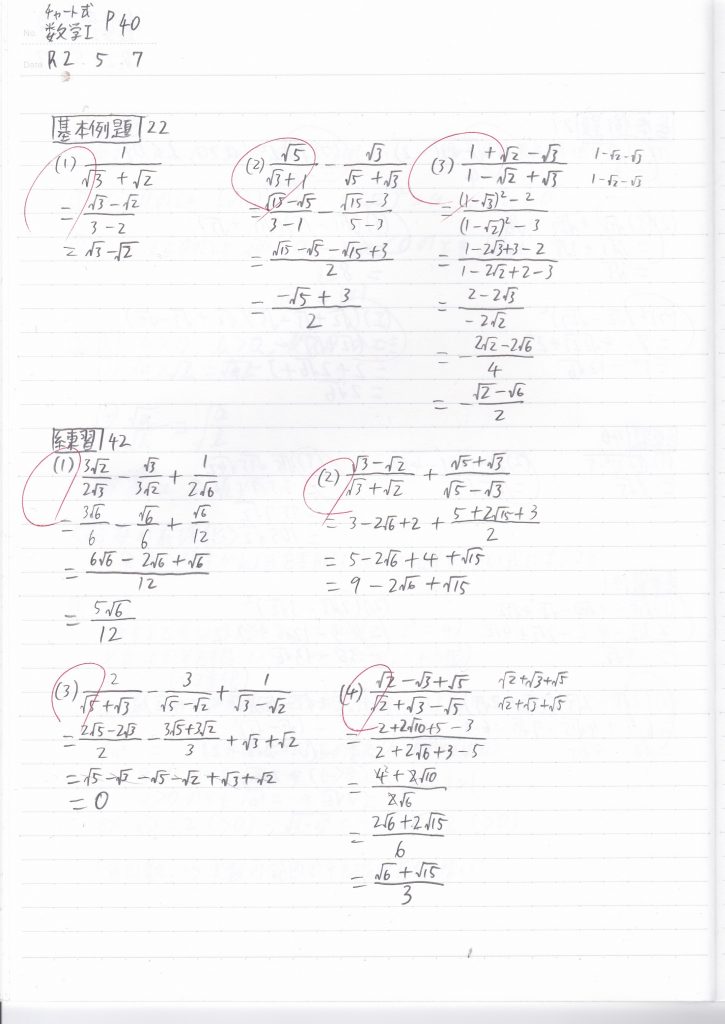 チャート式
数学I P40
No.
Date R2 5 7
基本例題 22
(1) 1/(√3+√2)
= (√3-√2)/(3-2)
= √3-√2
(2) √5/(√3+1) - √3/(√5+√3)
= (√15-√5)/(3-1) - (√15-3)/(5-3)
= (√15-√5-√15+3)/2
= (-√5+3)/2
(3) (1+√2-√3)/(1-√2+√3) 1-√2-√3
1-√2-√3
= ((1-√3)²-2)/((1-√2)²-3)
= (1-2√3+3-2)/(1-2√2+2-3)
= (2-2√3)/(-2√2)
= -(2√2-2√6)/4
= -(√2-√6)/2
練習 42
(1) 3√2/2√3 - √3/3√2 + 1/2√6
= 3√6/6 - √6/6 + √6/12
= (6√6-2√6+√6)/12
= 5√6/12
(2) (√3-√2)/(√3+√2) + (√5+√3)/(√5-√3)
= 3-2√6+2 + (5+2√15+3)/2
= 5-2√6+4+√15
= 9-2√6+√15
(3) 2/(√5+√3) - 3/(√5-√2) + 1/(√3-√2)
= (2√5-2√3)/2 - (3√5+3√2)/3 + √3+√2
= √5-√3-√5-√2+√3+√2
= 0
(4) (√2-√3+√5)/(√2+√3-√5) √2+√3+√5
√2+√3+√5
= (2+2√10+5-3)/(2+2√6+3-5)
= (4+2√10)/2√6
= (2√6+2√15)/6
= (√6+√15)/3